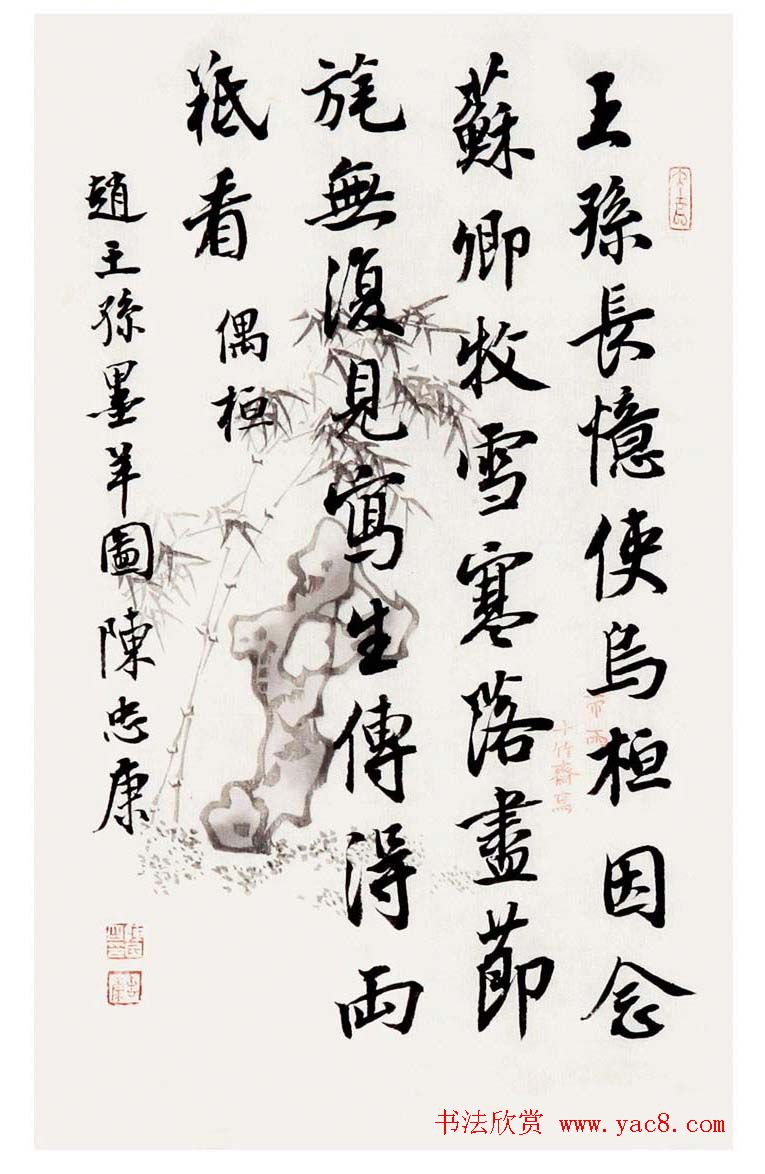 王孫長憶使烏桓因念
蘇卿牧雪寒落盡節
旄無復見寫生傳得兩
羝看
偶桓
趙王孫墨羊圖陳忠康
十竹齋寫
书法欣赏 www.yac8.com